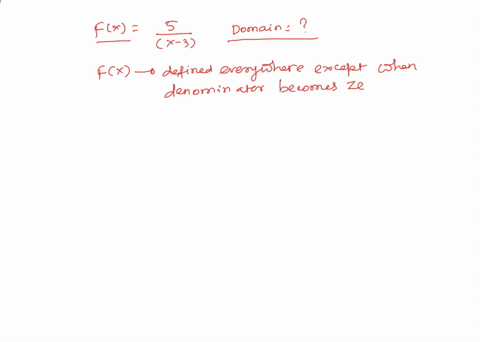 F(x) = 5/(x-3) Domain = ?
F(x) → defined everywhere except when
denominator becomes ze